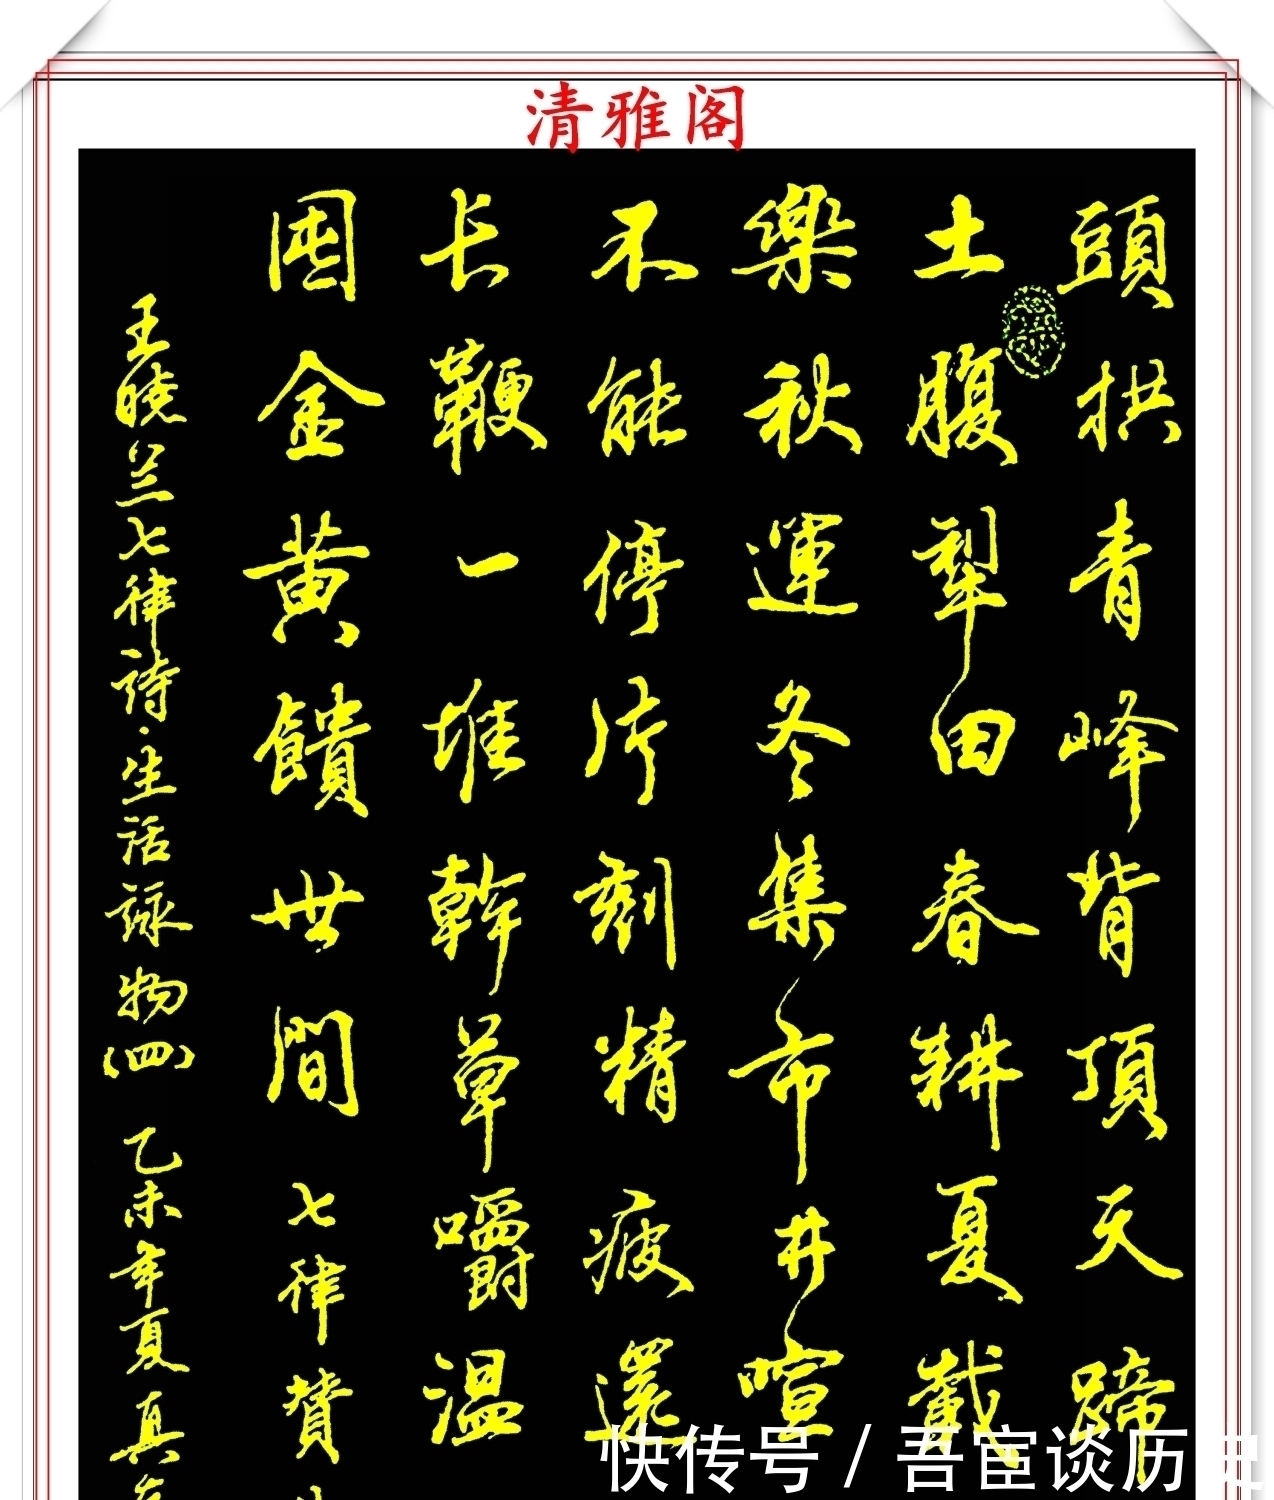 清雅阁
頭拱青峰背頂天蹄
土腹犁田春耕夏戴
樂秋運冬集市井喧
不能停片刻精疲還
长鞭一堆幹草嚼温
囤金黄饋世間七律赞
王晓兰七律詩·生活詠物(四)乙未年夏真
快传号/吾宦谈历史